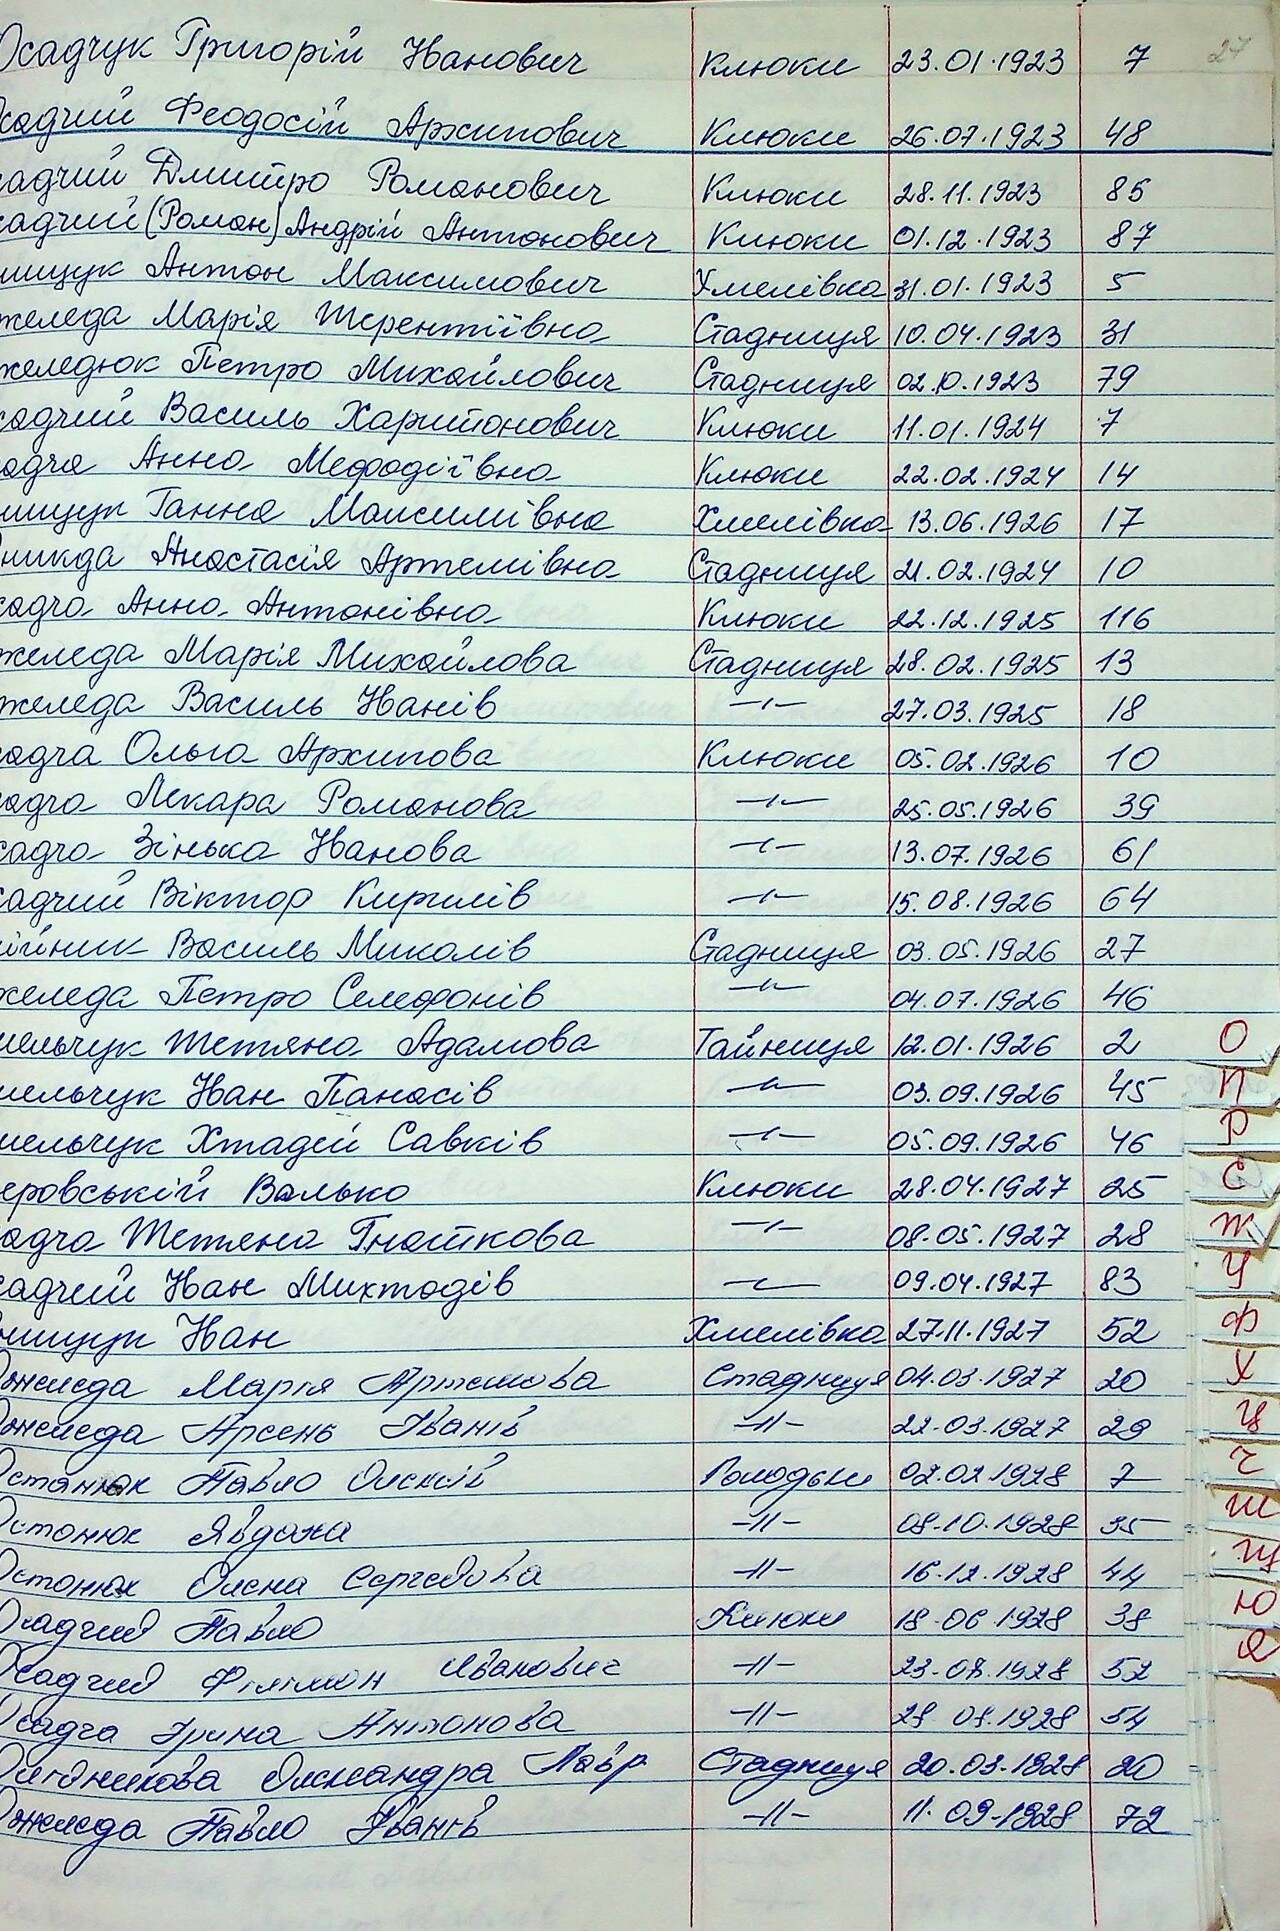 Осадчук Григорій Іванович Клюки 23.01.1923 7 27
садчий Феодосій Архипович Клюки 26.07.1923 48
садчий Дмитро Романович Клюки 28.11.1923 85
садчий (Роман) Андрій Антонович Клюки 01.12.1923 87
нищук Антон Максимович Хмелівка 31.01.1923 5
желеда Марія Терентіївна Стадниця 10.04.1923 31
желедюк Петро Михайлович Стадниця 02.10.1923 79
садчий Василь Харитонович Клюки 11.01.1924 7
садча Анна Мефодіївна Клюки 22.02.1924 14
нищук Ганна Максимівна Хмелівка 13.06.1926 17
Анастасія Артемівна Стадниця 21.02.1924 10
садча Анна Антонівна Клюки 22.12.1925 116
желеда Марія Михайлова Стадниця 28.02.1925 13
желеда Василь Іванів -"- 27.03.1925 18
садча Ольга Архипова Клюки 05.02.1926 10
садча Лекара Романова -"- 25.05.1926 39
садча Зінька Іванова -"- 13.07.1926 61
садчий Віктор Кирилів -"- 15.08.1926 64
ійник Василь Миколів Стадниця 03.05.1926 27
желеда Петро Селефонів -"- 04.07.1926 46
мельчук Тетяна Адамова Тайниця 12.01.1926 2 О
мельчук Іван Панасів -"- 03.09.1926 45 П
мельчук Хтадей Савків -"- 05.09.1926 46 Р
еровській Валько Клюки 28.04.1927 25 С
садча Тетяна Гнаткова -"- 08.05.1927 28 Т
садчий Іван Михтодів -"- 09.04.1927 83 У
нищук Іван Хмелівка 27.11.1927 52 Ф
Ожеледа Марія Артемова Стадниця 04.03.1927 20 Х
Ожеледа Арсень Іванів -"- 22.03.1927 29 Ц
Остапюк Павло 02.02.1928 7 Ч
Остапюк Явдоха -"- 08.10.1928 35 Ш
Остапюк Олена Сергєєва -"- 16.12.1928 44 Щ
Осадчий Павло Клюки 18.06.1928 38 Ю
Осадчий Філімон Іванович -"- 23.07.1928 52 Я
Осадча Ірина Антонова -"- 54
Олександра Лавр Стадниця 20.03.1928 20
Ожеледа Павло Іванів -"- 11.09.1928 72